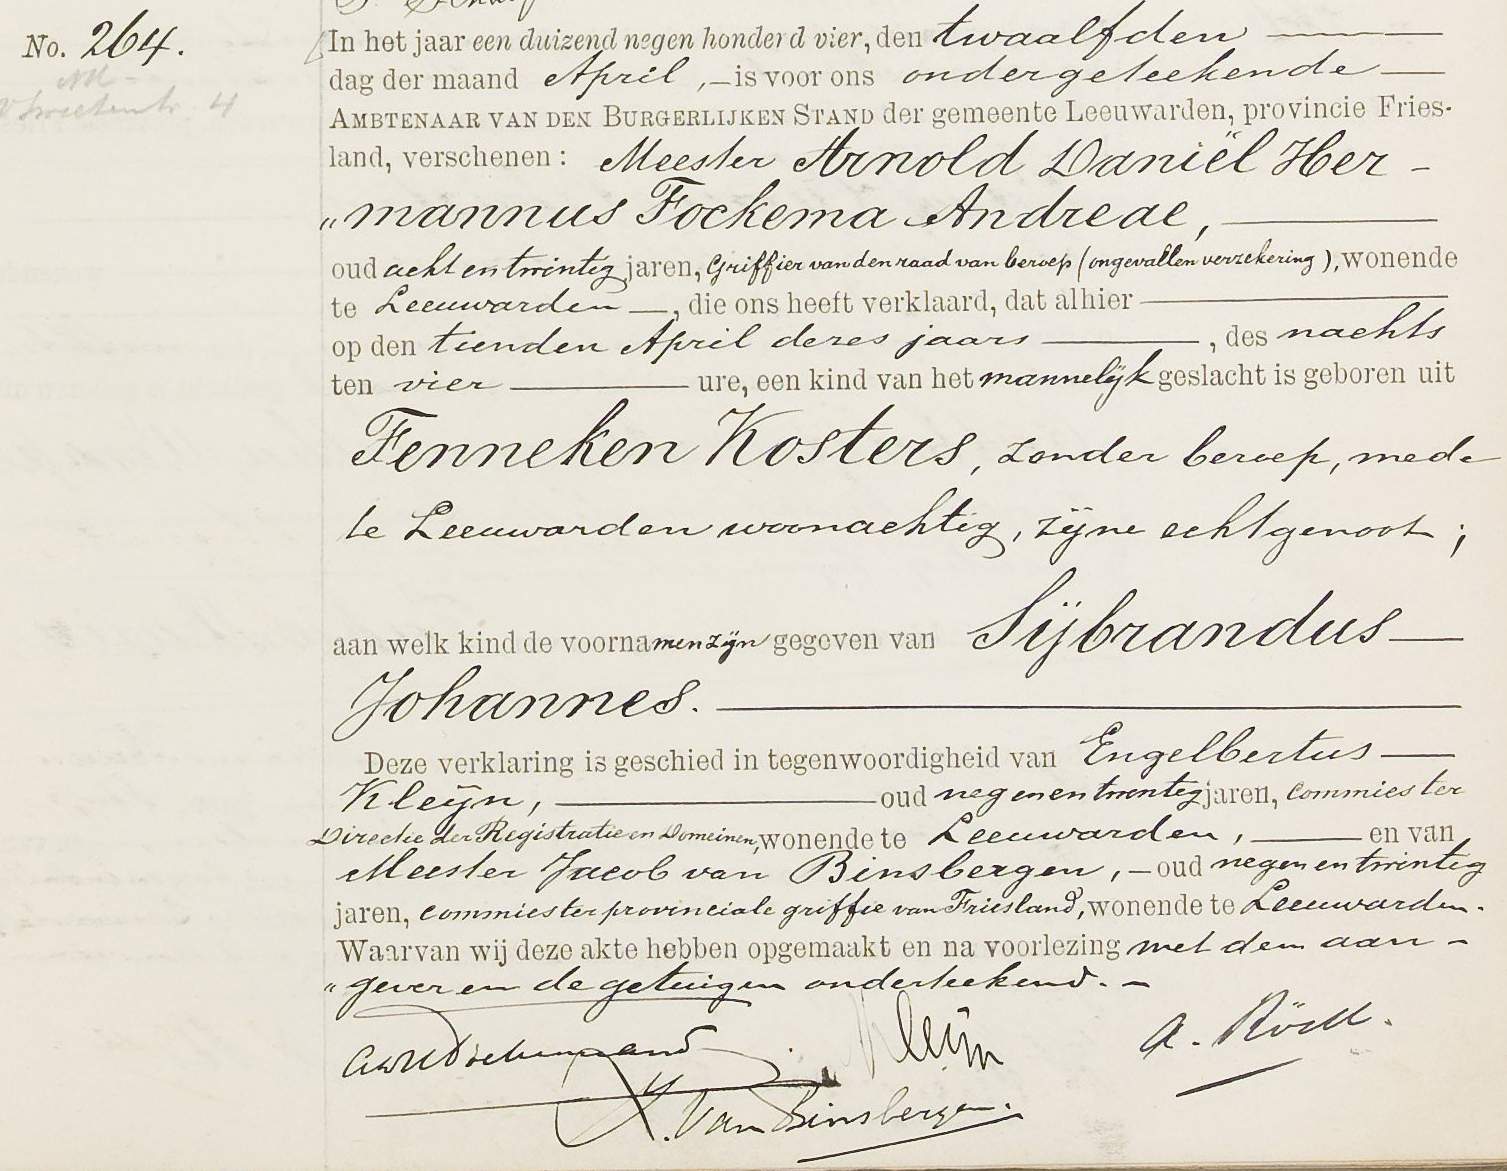 No. 264.
In het jaar een duizend negen honderd vier, den twaalfden
dag der maand April, is voor ons ondergeteekende
AMBTENAAR VAN DEN BURGERLIJKEN STAND der gemeente Leeuwarden, provincie Fries-
land, verschenen: Meester Arnold Daniël Her-
„mannus Fockema Andreae,
oud acht en twintig jaren, Griffier van den raad van beroep (ongevallen verzekering), wonende
te Leeuwarden, die ons heeft verklaard, dat alhier
op den tienden April dezes jaars, des nachts
ten vier ure, een kind van het mannelijk geslacht is geboren uit
Fenneken Kosters, zonder beroep, mede
te Leeuwarden woonachtig, zijne echtgenoot;
aan welk kind de voornamen zijn gegeven van Sijbrandus
Johannes.
Deze verklaring is geschied in tegenwoordigheid van Engelbertus
Kleijn, oud negen en twintig jaren, commies ter
Directie der Registratie en Domeinen, wonende te Leeuwarden, en van
Meester Jacob van Binsbergen, oud negen en twintig
jaren, commies ter provinciale griffie van Friesland, wonende te Leeuwarden.
Waarvan wij deze akte hebben opgemaakt en na voorlezing met den aan-
„gever en de getuigen onderteekend.
Kleijn
A. Röell.
J. van Binsbergen.